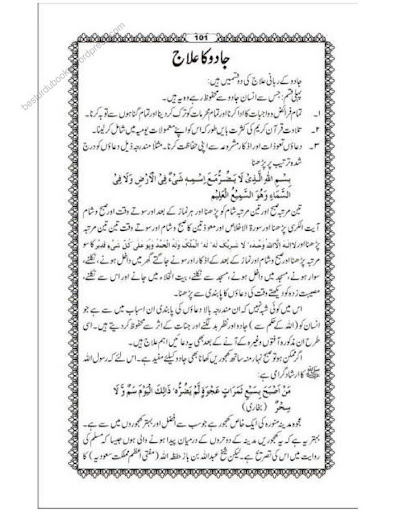 besturdubooks.wordpress.com
101
جادو کا علاج
جادو کے ربانی علاج کی دو قسمیں ہیں:
پہلی قسم: جس سے انسان جادو سے محفوظ رہے وہ یہ ہیں۔
۱۔ تمام فرائض و واجبات کا ادا کرنا اور تمام محرمات کو ترک کر دینا اور تمام گناہوں سے توبہ کرنا۔
۲۔ تلاوت قرآن کریم کی کثرت بایں طور کہ اس کو اپنے معمولات یومیہ میں شامل کر لینا۔
۳۔ دعاؤں تعوذات اور اذکار مشروعہ سے اپنی حفاظت کرنا۔ مثلاً مندرجہ ذیل دعاؤں کو درج
شدہ ترتیب پر پڑھنا
بِسْمِ اللهِ الَّذِىْ لَا يَضُرُّ مَعَ اِسْمِهٖ شَىْءٌ فِى الْاَرْضِ وَلَا فِى
السَّمَاءِ وَهُوَ السَّمِيْعُ الْعَلِيْمُ
تین مرتبہ صبح اور تین مرتبہ شام کو پڑھنا اور ہر نماز کے بعد اور سوتے وقت اور صبح و شام
آیت الکرسی پڑھنا اور سورۃ الاخلاص اور معوذتین کا صبح و شام اور سوتے وقت تین تین مرتبہ
پڑھنا اور لا الہ الا اللہ وحدہ، لا شریک لہ لہ، الملک ولہ الحمد وھو علی کل شیء قدیر کا سو
مرتبہ پڑھنا اور صبح و شام اور نماز کے بعد کے اذکار اور سونے جاگنے گھر میں داخل ہونے، نکلنے،
سوار ہونے، مسجد میں داخل ہونے، مسجد سے نکلنے، بیت الخلاء میں جانے اور اس سے نکلنے،
مصیبت زدہ کو دیکھتے وقت کی دعاؤں کا پابندی سے پڑھنا۔
اس میں کوئی شبہ نہیں کہ ان مندرجہ بالا دعاؤں کی پابندی ان اسباب میں سے ہے جو
انسان کو (اللہ کے حکم سے) جادو اور نظر بد لگنے اور جنات کے اثر سے محفوظ کر دیتے ہیں۔ اسی
طرح ان مذکورہ آفتوں وغیرہ کے آنے کے بعد بھی یہ دعائیں اہم علاج ہیں۔
اگر ممکن ہو تو صبح نہار منہ سات کھجوریں کھانا بھی جادو کیلئے مفید ہے۔ اس لئے کہ رسول اللہ
ﷺ کا ارشاد گرامی ہے:
مَنْ اَصْبَحَ بِسَبْعِ تَمَرَاتٍ عَجْوَةٍ لَمْ يَضُرُّه، ذَالِكَ الْيَوْمَ سَمٌّ وَّلَا
سِحْرٌ (بخاری)
عجوہ مدینہ منورہ کی ایک خاص کھجور ہے جو سب سے افضل اور بہتر کھجوروں میں سے ہے۔
بہتر یہ ہے کہ یہ کھجوریں مدینہ کے دو حروں کے درمیان پیدا ہونے والی ہوں جیسا کہ مسلم کی
روایت میں اس کی تصریح ہے۔ لیکن شیخ عبداللہ بن باز حفظہ اللہ (مفتی اعظم مملکت سعودیہ) کا